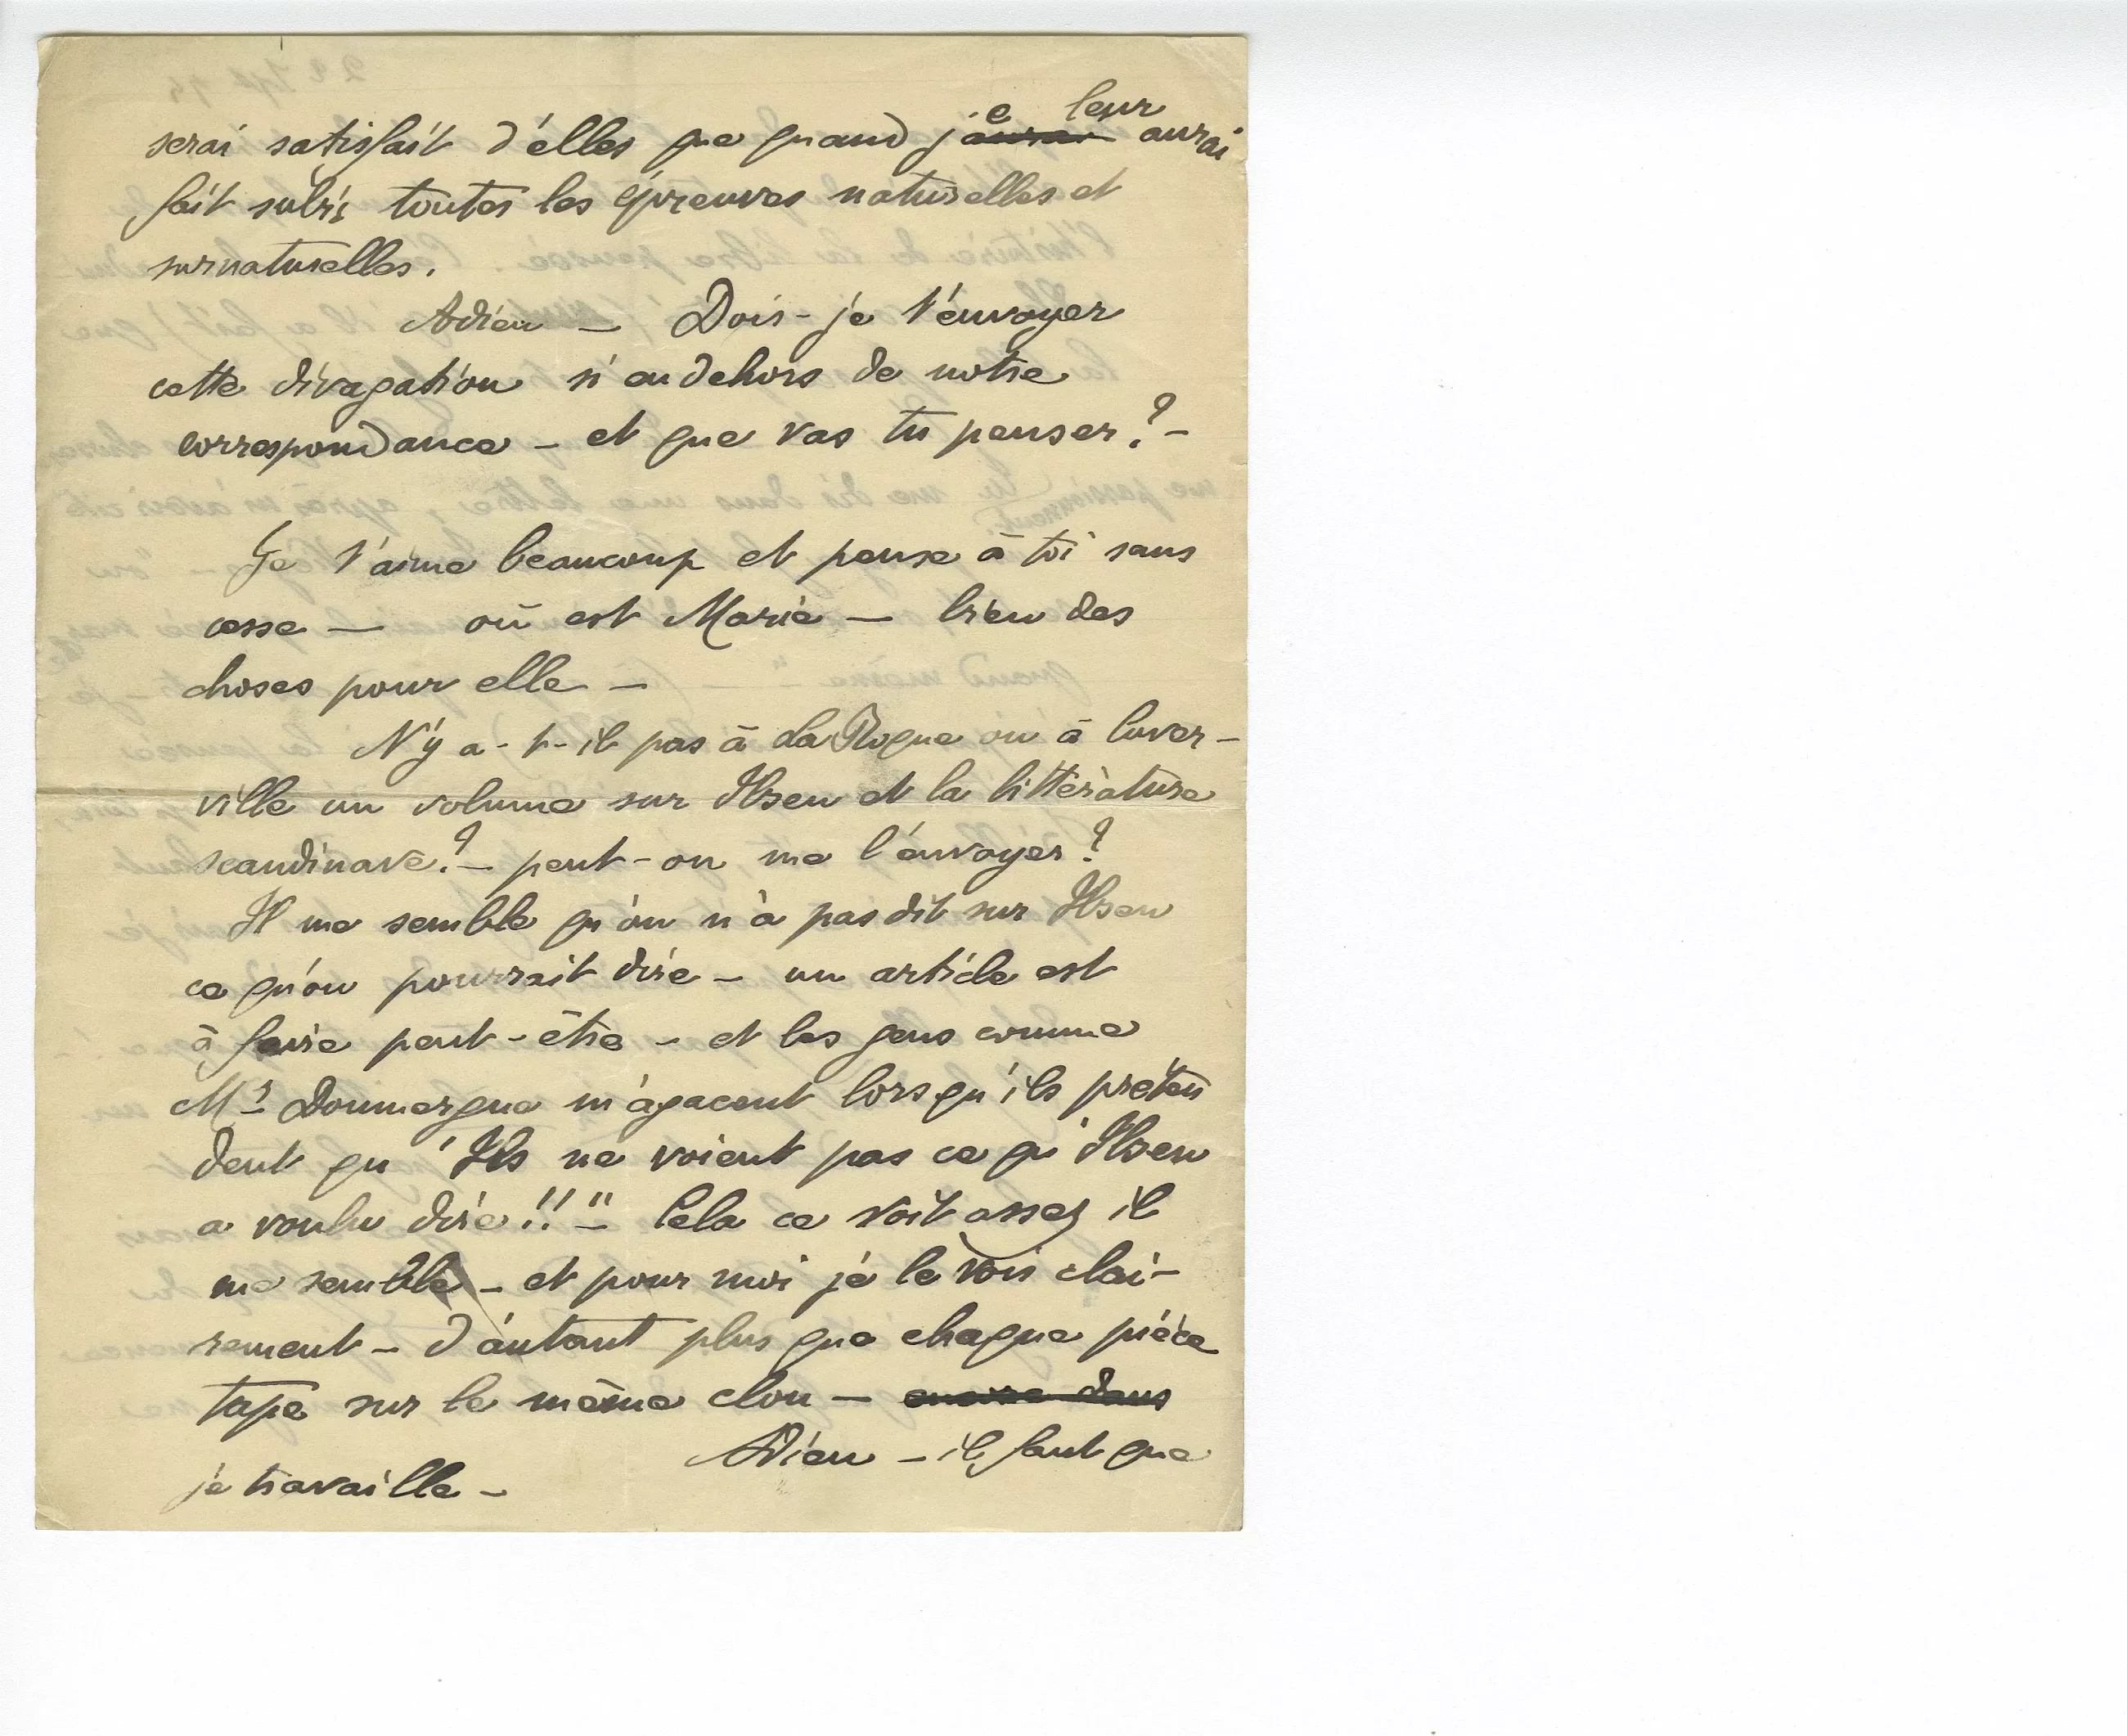 serai satisfait d'elles que quand je leur aurai
fait subir toutes les épreuves naturelles et
surnaturelles.
Adieu — Dois-je t'envoyer
cette divagation si en dehors de notre
correspondance — et que vas tu penser? —
Je t'aime beaucoup et pense à toi sans
cesse — où est Marie — bien des
choses pour elle —
N'y a-t-il pas à La Roque ou à Cuver-
ville un volume sur Ibsen et la littérature
scandinave? — peut-on me l'envoyer?
Il me semble qu'on n'a pas dit sur Ibsen
ce qu'on pourrait dire — un article est
à faire peut-être — et les gens comme
Mr Doumergue m'agacent lorsqu'ils préten
dent qu'"Ils ne voient pas ce qu'Ibsen
a voulu dire!!" — Cela ce voit assez il
me semble — et pour moi je le vois clai-
rement — d'autant plus que chaque pièce
tape sur le même clou — encore dans
Adieu — il faut que
je travaille —